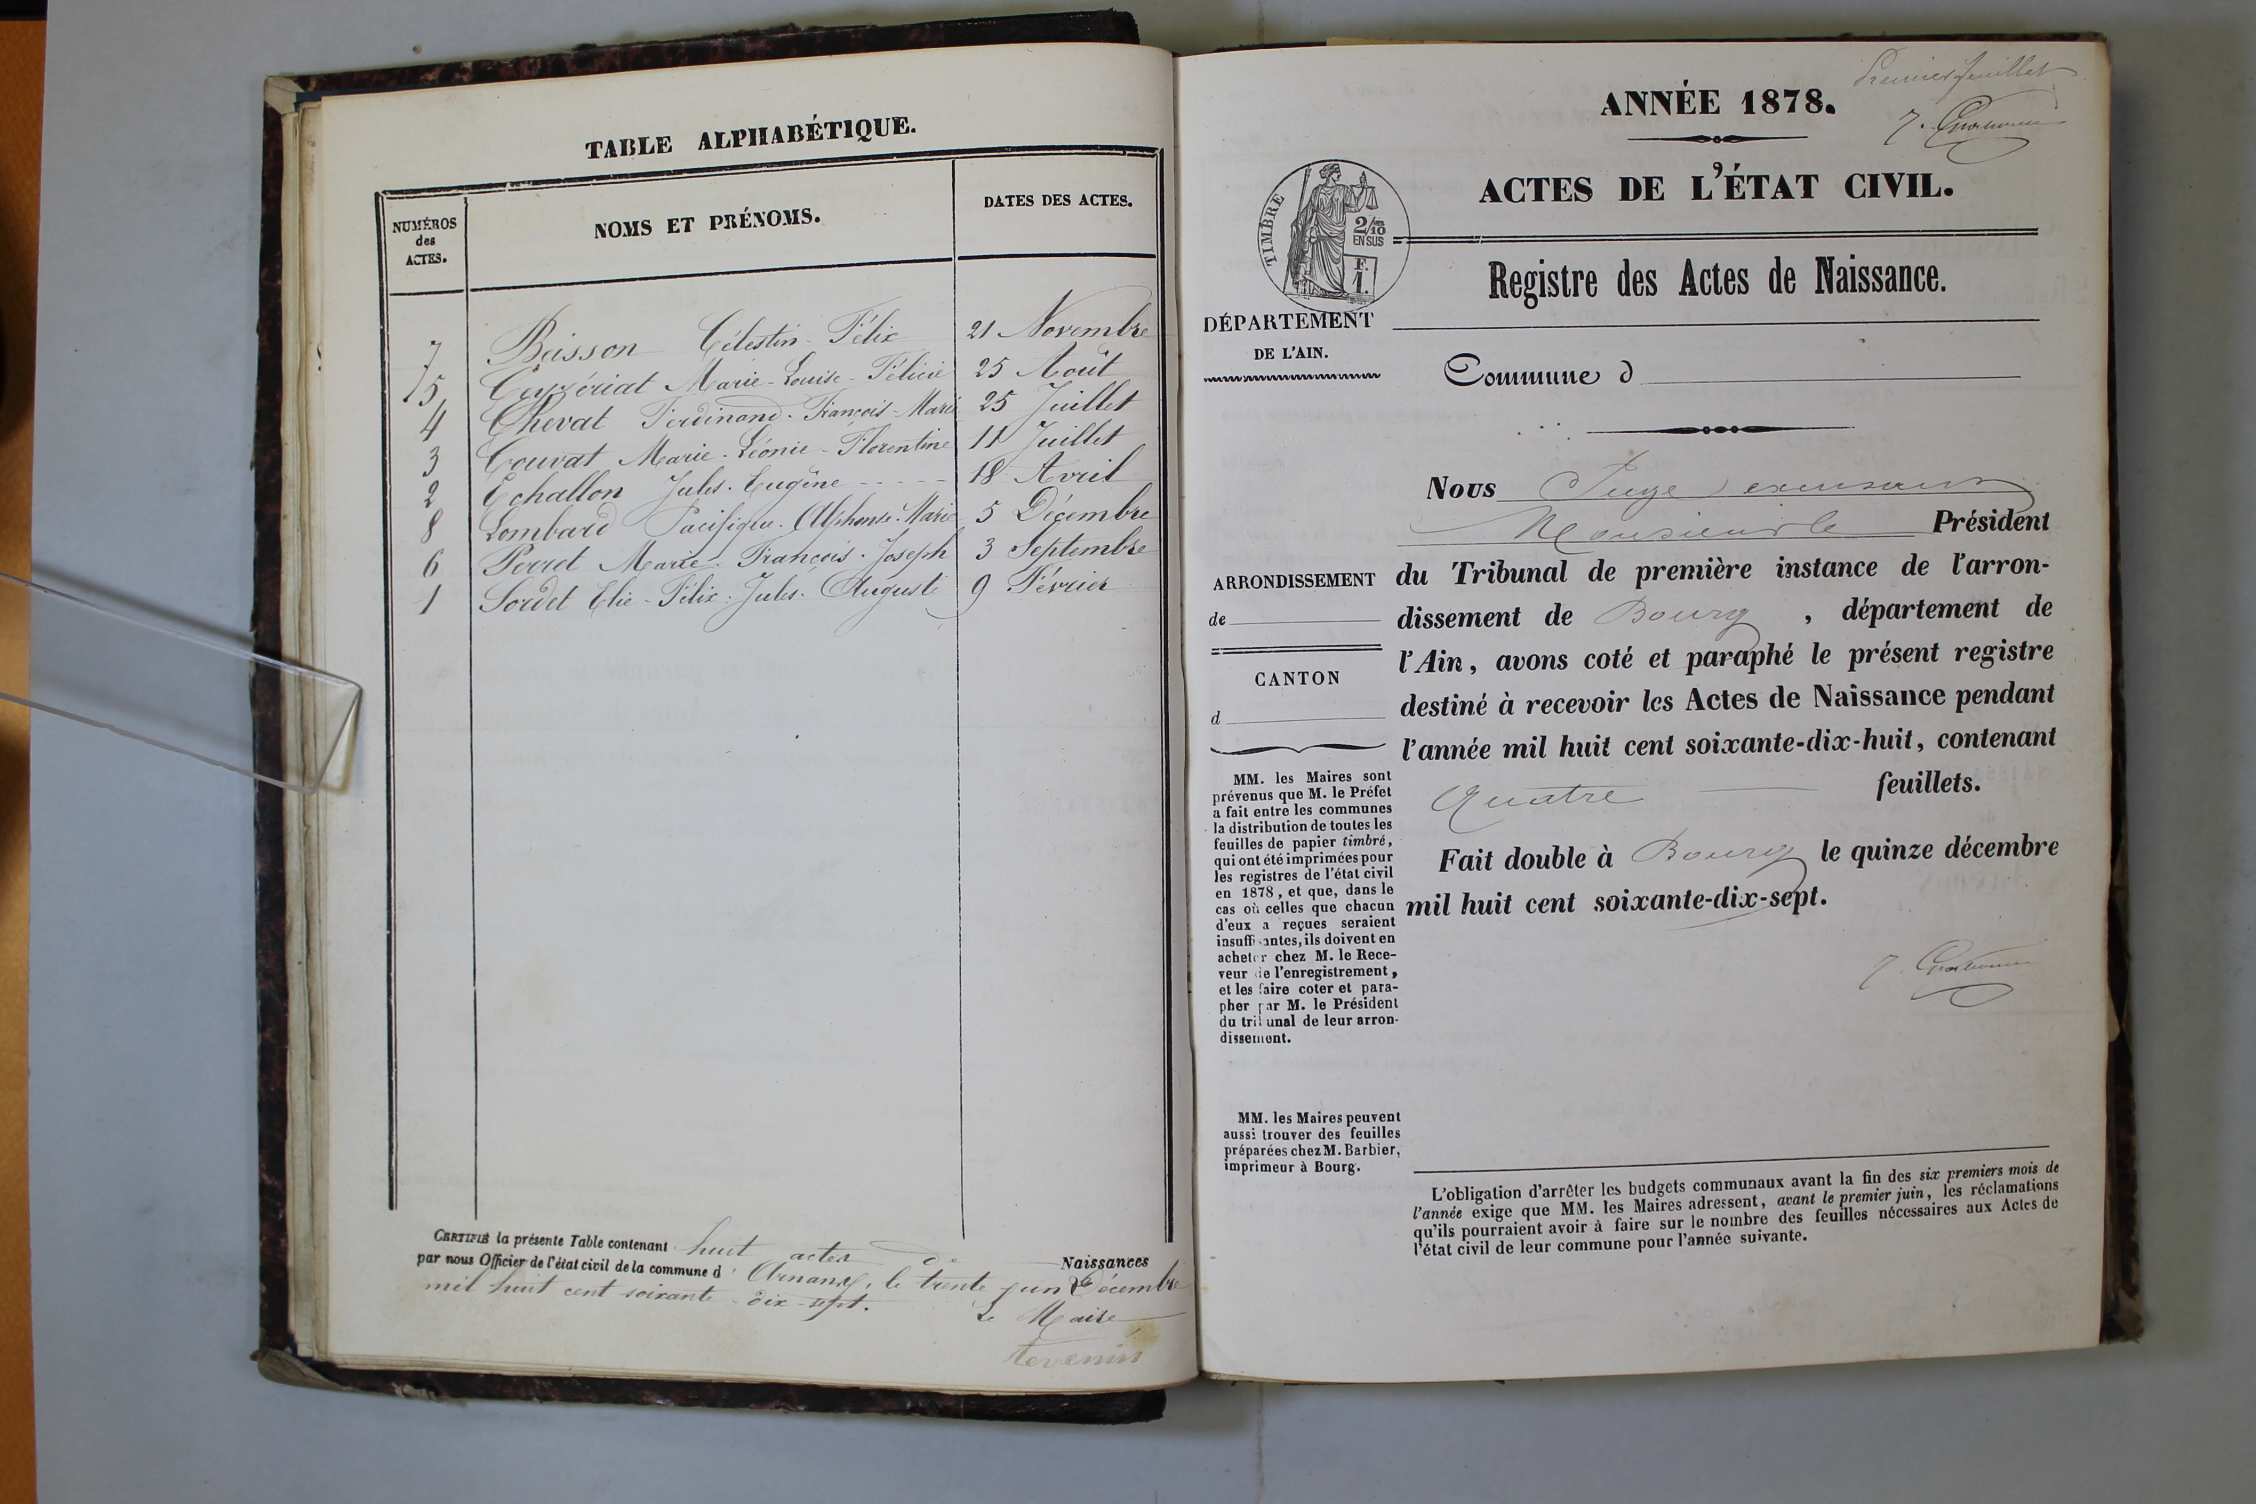 TABLE ALPHABÉTIQUE.
NUMÉROS des ACTES. NOMS ET PRÉNOMS. DATES DES ACTES.
7 Buisson Célestin-Félix 21 Novembre
5 Ceyzériat Marie-Louise-Félicie 25 Août
4 Chevat Ferdinand-François-Marie 25 Juillet
3 Couvat Marie-Léonie-Florentine 11 Juillet
2 Echallon Jules-Eugène 18 Avril
8 Lombard Pacifique-Alphonse-Marie 5 Décembre
6 Perret Marie-François-Joseph 3 Septembre
1 Sordet Elie-Félix-Jules-Auguste 9 Février
CERTIFIÉ la présente Table contenant huit actes de Naissances
par nous Officier de l'état civil de la commune d' Arnans, le trente un Décembre
mil huit cent soixante-dix-sept.
Le Maire
Tevenin
Premier feuillet
ANNÉE 1878.
ACTES DE L'ÉTAT CIVIL.
TIMBRE
2/10 EN SUS
F. 1.
Registre des Actes de Naissance.
DÉPARTEMENT
DE L'AIN.
Commune d
Nous Juge
Monsieur le Président
ARRONDISSEMENT
de
CANTON
d
du Tribunal de première instance de l'arron-
dissement de Bourg , département de
l'Ain, avons coté et paraphé le présent registre
destiné à recevoir les Actes de Naissance pendant
l'année mil huit cent soixante-dix-huit, contenant
Quatre feuillets.
Fait double à Bourg le quinze décembre
mil huit cent soixante-dix-sept.
MM. les Maires sont
prévenus que M. le Préfet
a fait entre les communes
la distribution de toutes les
feuilles de papier timbré,
qui ont été imprimées pour
les registres de l'état civil
en 1878, et que, dans le
cas où celles que chacun
d'eux a reçues seraient
insuffisantes, ils doivent en
acheter chez M. le Rece-
veur de l'enregistrement,
et les faire coter et para-
pher par M. le Président
du tribunal de leur arron-
dissement.
MM. les Maires peuvent
aussi trouver des feuilles
préparées chez M. Barbier,
imprimeur à Bourg.
L'obligation d'arrêter les budgets communaux avant la fin des six premiers mois de
l'année exige que MM. les Maires adressent, avant le premier juin, les réclamations
qu'ils pourraient avoir à faire sur le nombre des feuilles nécessaires aux Actes de
l'état civil de leur commune pour l'année suivante.